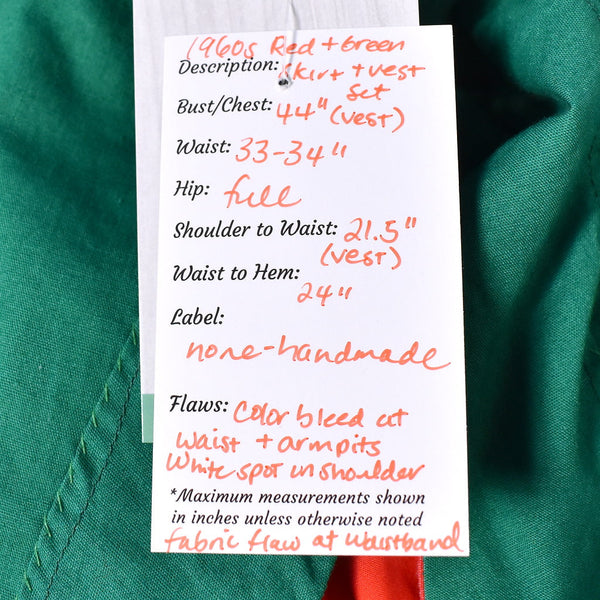 1960s Red + Green
Description: skirt + vest
set
Bust/Chest: 44" (vest)
Waist: 33-34"
Hip: full
Shoulder to Waist: 21.5"
(vest)
Waist to Hem:
24"
Label:
none-handmade
Flaws: Color bleed at
waist + armpits
White spot on shoulder
*Maximum measurements shown
in inches unless otherwise noted
fabric flaw at waistband